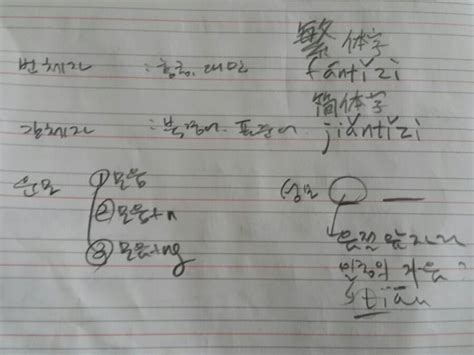 번체자 : 홍콩, 대만 繁体字
fántǐzì
간체자 : 북경어. 표준어 简体字
jiǎntǐzì
운모 ① 모음
② 모음+n
③ 모음+ng
성모
음절 앞자리
일종의 자음
tiān